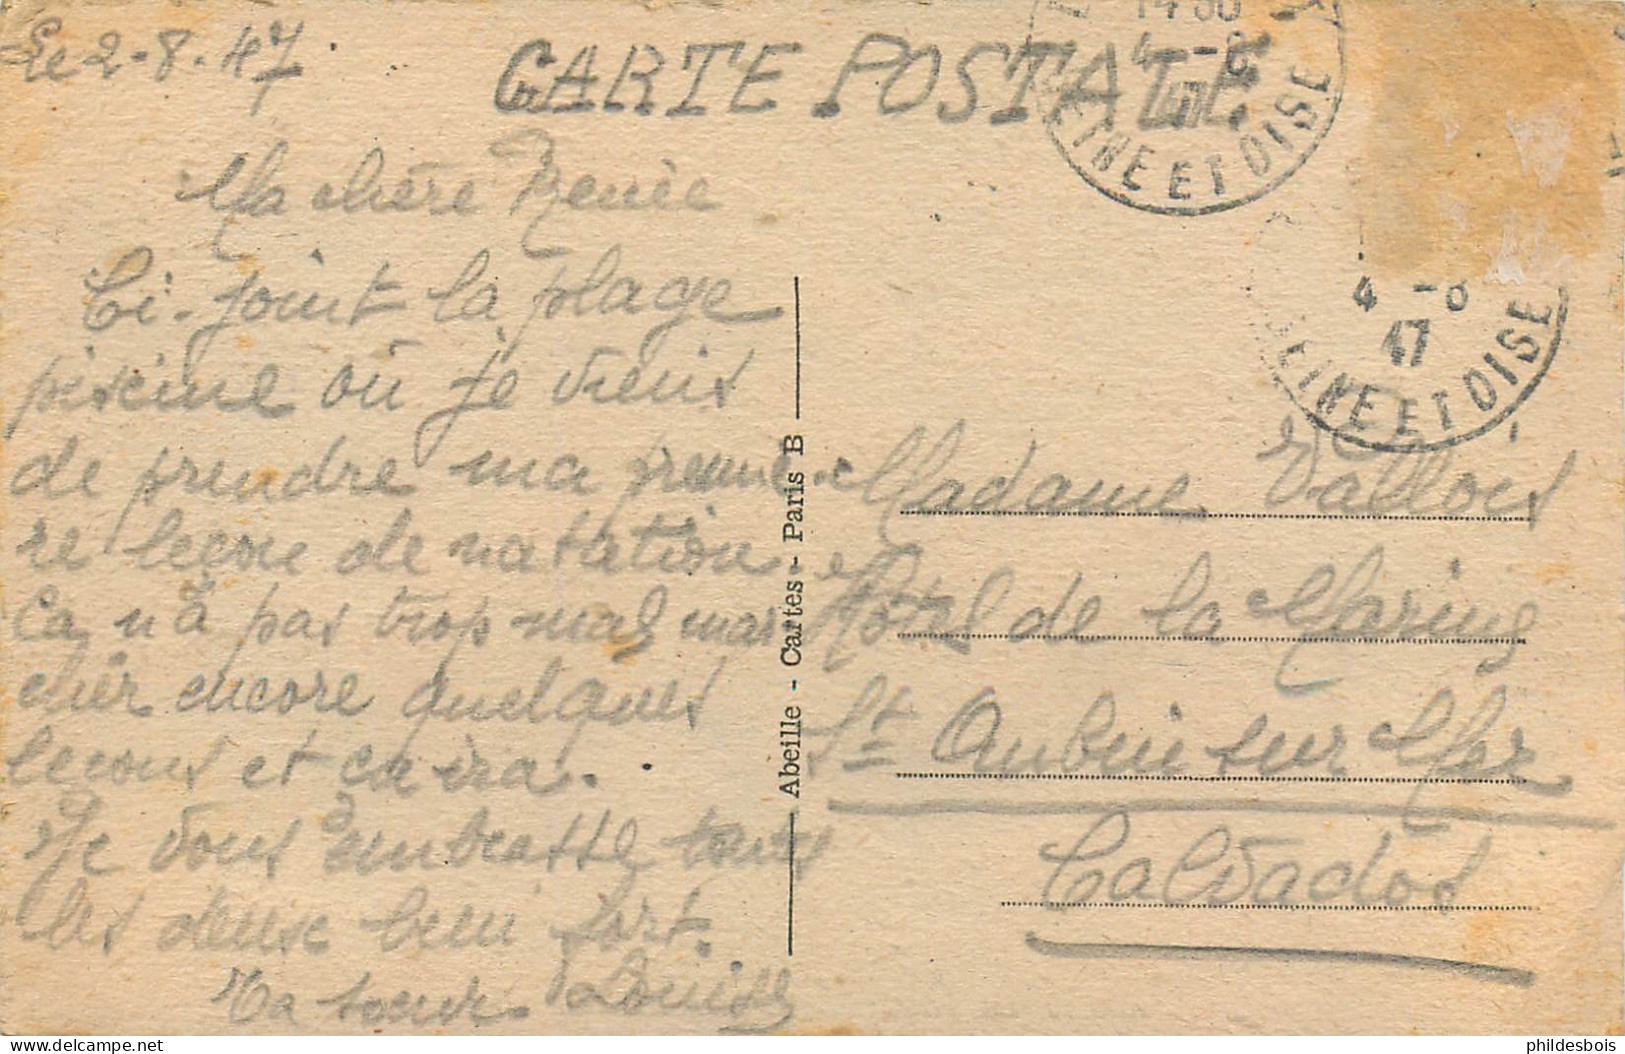 Le 2-8-47
CARTE POSTALE
14 30
4 -8
47
SEINE ET OISE
4 -8
47
SEINE ET OISE
Ma chère Renée
Ci-joint la plage
piscine où je viens
de prendre ma premiè-
re leçon de natation.
Ça n'a pas trop mal marché
encore quelques
leçons et ça ira.
Je vous embrasse toutes
les deux bien fort.
Ta soeur Louise
Abeille - Cartes - Paris B
Madame Vallois
Hôtel de la Marine
St Aubin sur Mer
Calvados
philesbois